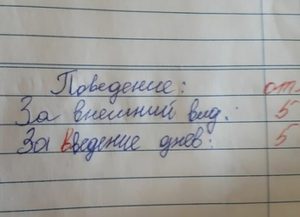 Поведение: отл.
За внешний вид: 5
За введение днев: 5